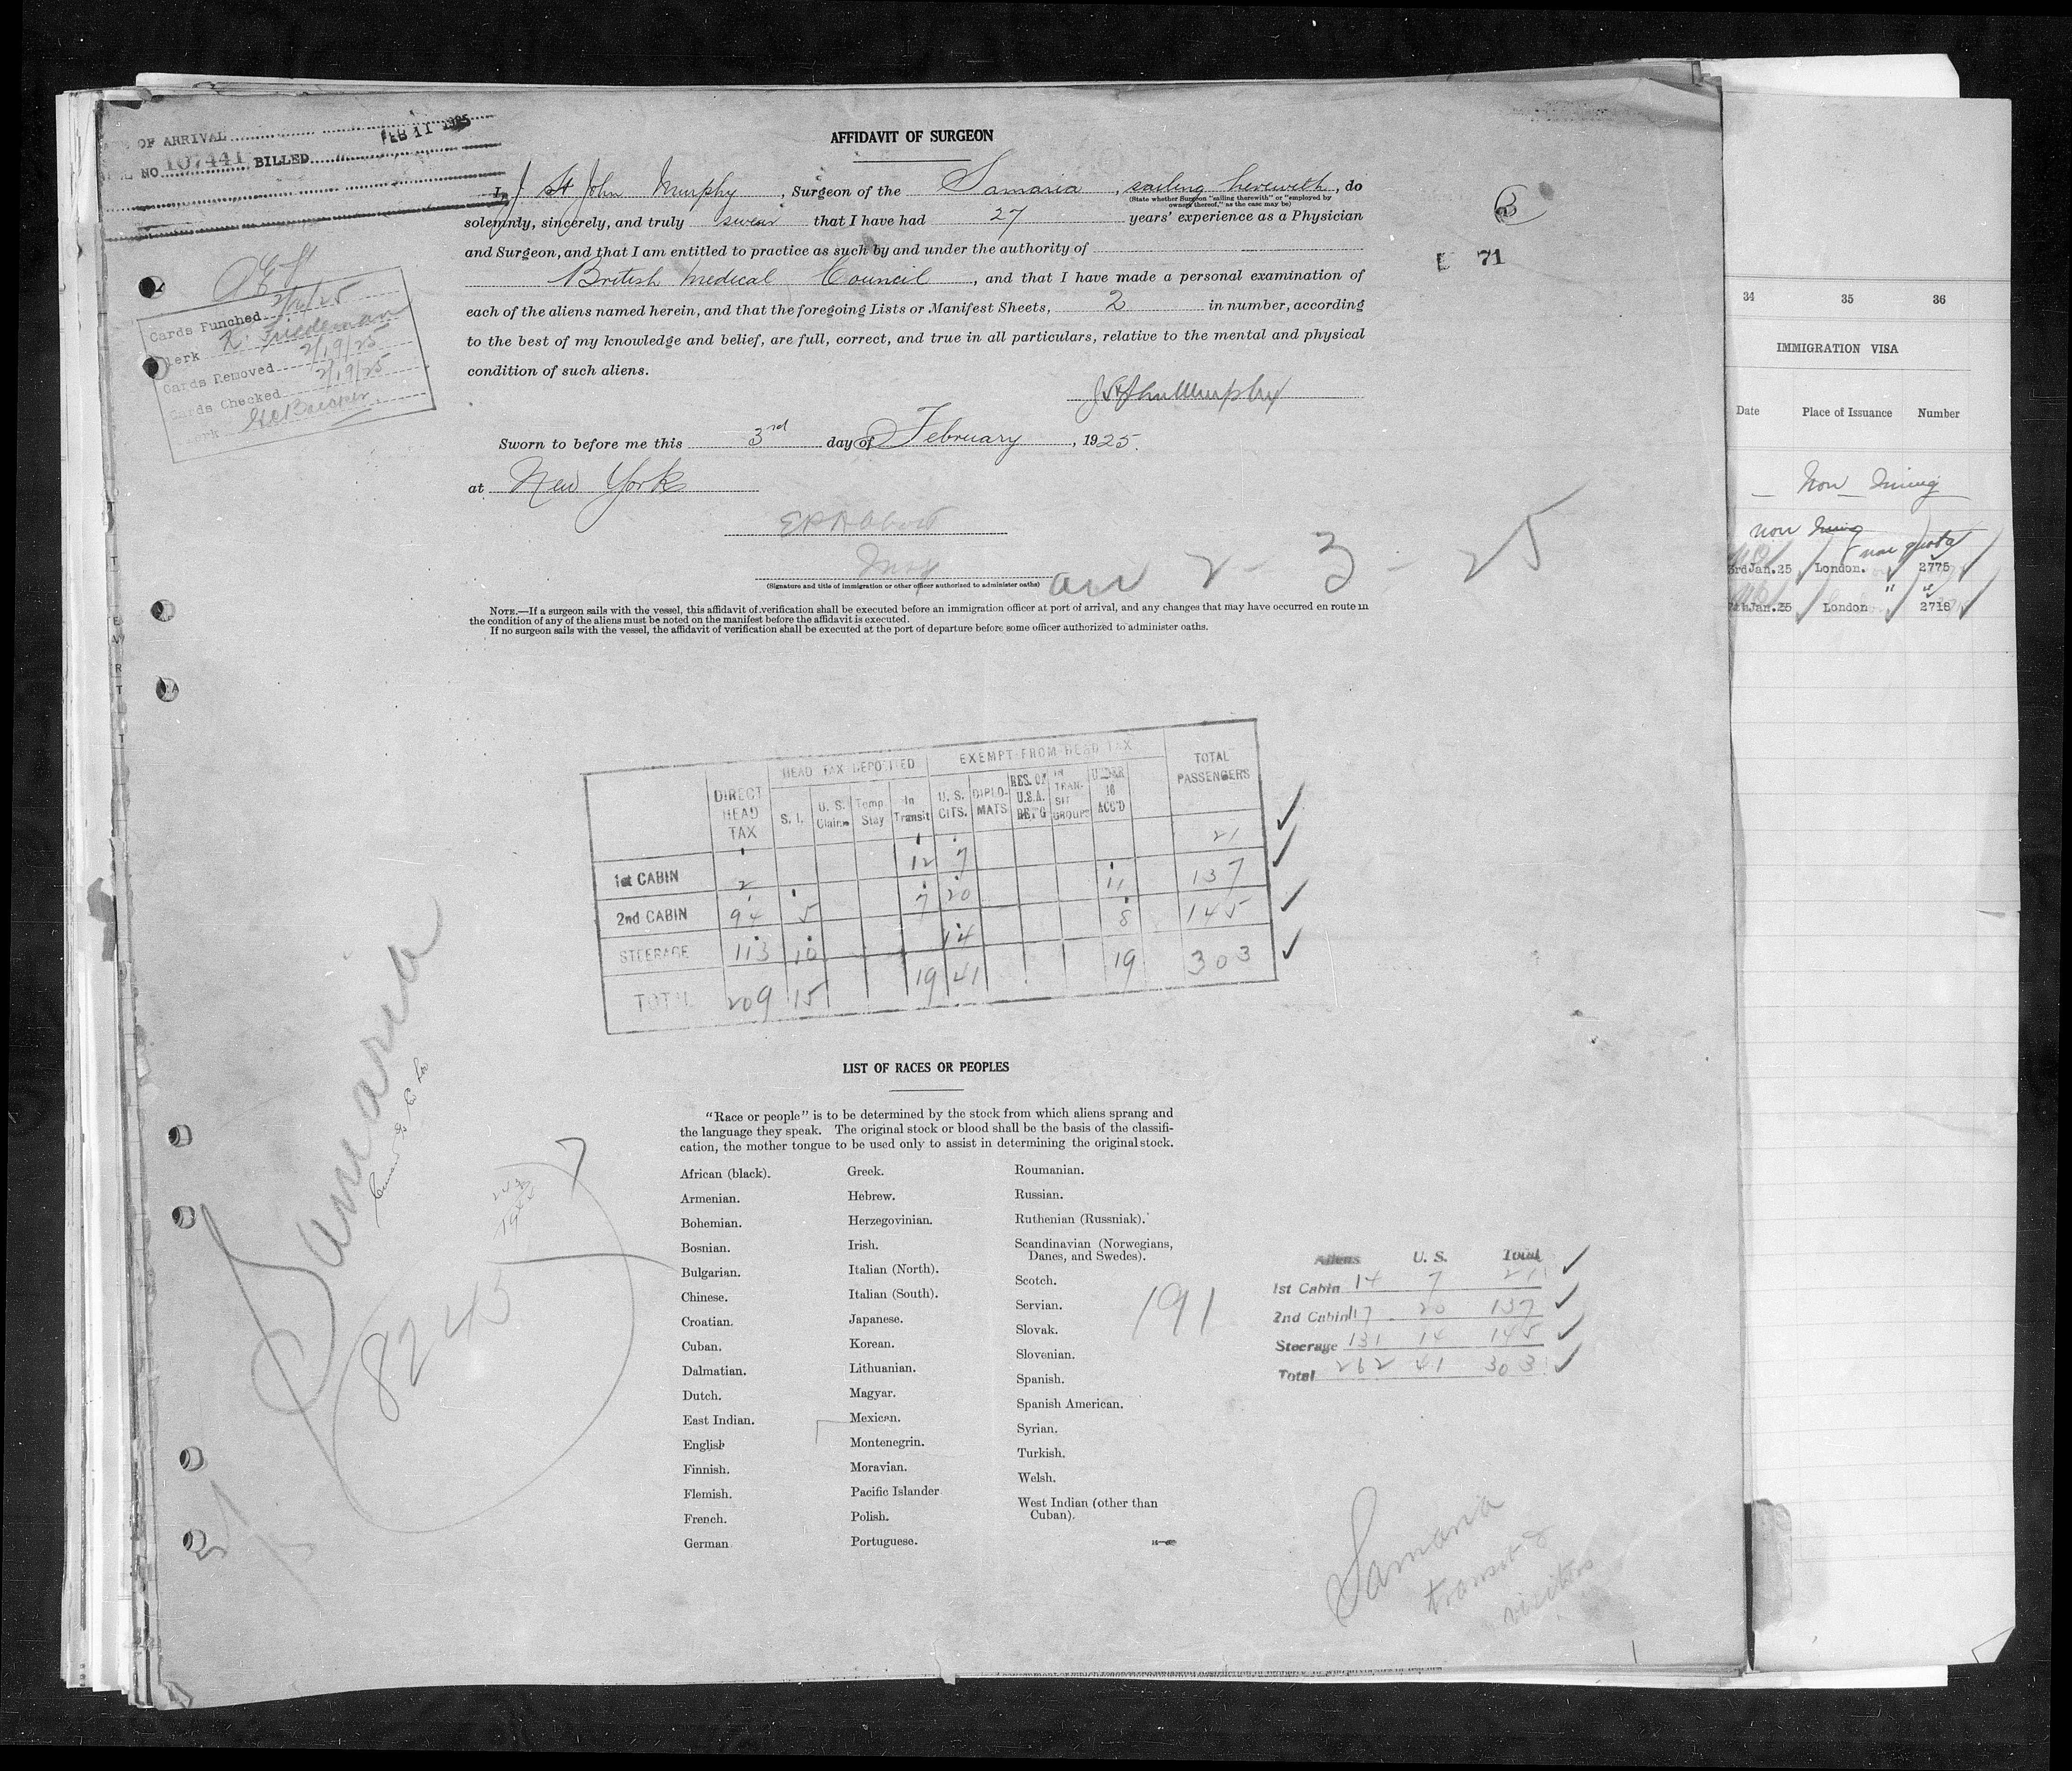 OF ARRIVAL
FEB 11 1925
NO. 107441 BILLED
AFFIDAVIT OF SURGEON
I, J. St John Murphy, Surgeon of the Samaria, sailing herewith, do
(State whether Surgeon "sailing therewith" or "employed by
owners thereof," as the case may be)
solemnly, sincerely, and truly swear that I have had 27 years' experience as a Physician
and Surgeon, and that I am entitled to practice as such by and under the authority of
British Medical Council, and that I have made a personal examination of
each of the aliens named herein, and that the foregoing Lists or Manifest Sheets, 2 in number, according
to the best of my knowledge and belief, are full, correct, and true in all particulars, relative to the mental and physical
condition of such aliens.
J St John Murphy
Sworn to before me this 3rd day of February, 1925.
at New York
(Signature and title of immigration or other officer authorized to administer oaths)
arr 2-3-25
NOTE.—If a surgeon sails with the vessel, this affidavit of verification shall be executed before an immigration officer at port of arrival, and any changes that may have occurred en route in
the condition of any of the aliens must be noted on the manifest before the affidavit is executed.
If no surgeon sails with the vessel, the affidavit of verification shall be executed at the port of departure before some officer authorized to administer oaths.
71
Cards Punched 2/16/25
Clerk R. Friedeman
Cards Removed 2/19/25
Cards Checked 2/19/25
Clerk
HEAD TAX DEPOSITED EXEMPT FROM HEAD TAX
DIRECT HEAD TAX S. I. U. S. Claim Temp. Stay In Transit U. S. CITS. DIPLOMATS RES. OF U.S.A. RET'G IN TRANSIT GROUPS UNDER 16 ACC'D TOTAL PASSENGERS
1st CABIN 2 12 7 21
2nd CABIN 94 5 7 20 11 137
STEERAGE 113 10 14 8 145
TOTAL 209 15 19 41 19 303
Samaria
8245
7
LIST OF RACES OR PEOPLES
"Race or people" is to be determined by the stock from which aliens sprang and
the language they speak. The original stock or blood shall be the basis of the classifi-
cation, the mother tongue to be used only to assist in determining the original stock.
African (black).
Armenian.
Bohemian.
Bosnian.
Bulgarian.
Chinese.
Croatian.
Cuban.
Dalmatian.
Dutch.
East Indian.
English
Finnish.
Flemish.
French.
German
Greek.
Hebrew.
Herzegovinian.
Irish.
Italian (North).
Italian (South).
Japanese.
Korean.
Lithuanian.
Magyar.
Mexican.
Montenegrin.
Moravian.
Pacific Islander
Polish.
Portuguese.
Roumanian.
Russian.
Ruthenian (Russniak).
Scandinavian (Norwegians,
Danes, and Swedes).
Scotch.
Servian.
Slovak.
Slovenian.
Spanish.
Spanish American.
Syrian.
Turkish.
Welsh.
West Indian (other than
Cuban).
191
Aliens U. S. Total
1st Cabin 14 7 21
2nd Cabin 117 20 137
Steerage 131 14 145
Total 262 41 303
Samaria
transit &
visitors
34 35 36
IMMIGRATION VISA
Date Place of Issuance Number
Non Immig
non Immig
non quota
3rd Jan. 25 London. 2775
7th Jan. 25 London " 2718